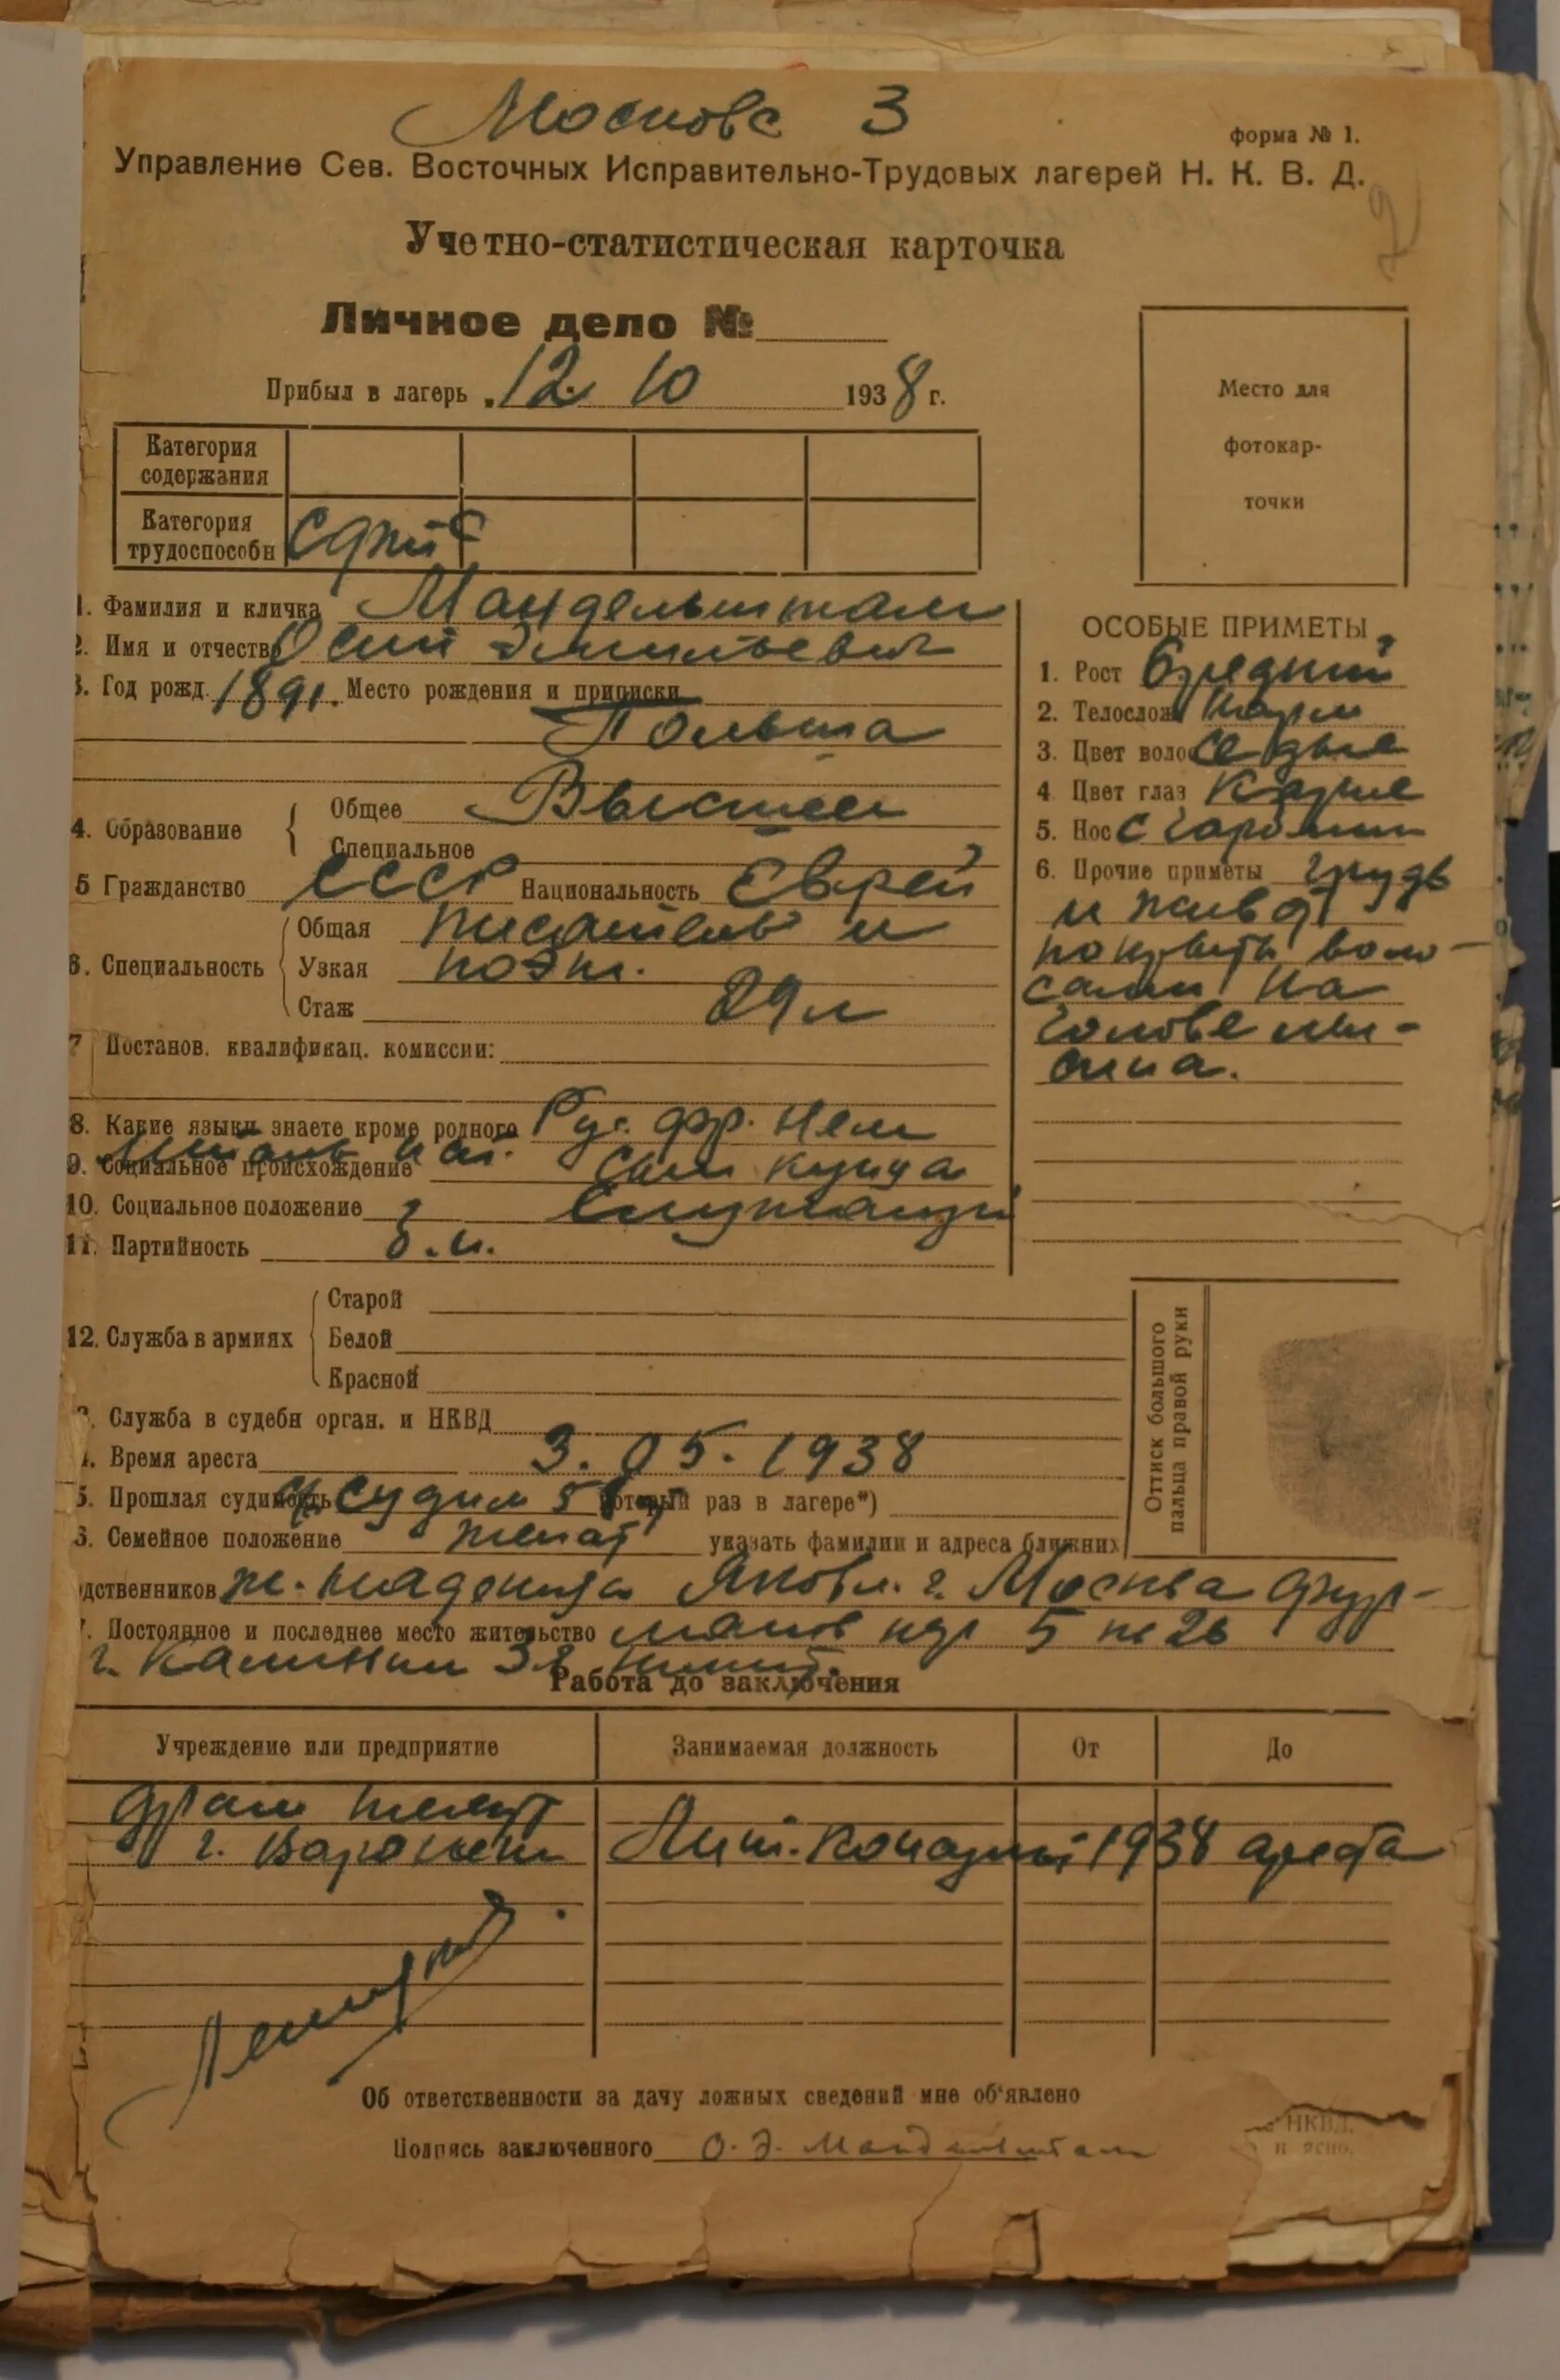 Москова 3
форма № 1.
Управление Сев. Восточных Исправительно-Трудовых лагерей Н. К. В. Д.
Учетно-статистическая карточка
Личное дело №
Прибыл в лагерь 12. 10 1938 г.
Место для
фотокар-
точки
Категория
содержания
Категория
трудоспособн
1. Фамилия и кличка Мандельштам
2. Имя и отчество Осип Эмильевич
3. Год рожд. 1891. Место рождения и приписки
Польша
4. Образование
Общее Высшее
Специальное
5 Гражданство СССР Национальность Еврей
6. Специальность
Общая писатель и
Узкая поэт.
Стаж 29 л
7 Постанов. квалификац. комиссии:
8. Какие языки знаете кроме родного Рус. фр. Нем
9. Социальное происхождение Сын купца
10. Социальное положение Служащий
11. Партийность б.п.
ОСОБЫЕ ПРИМЕТЫ
1. Рост Средний
2. Телослож Норм
3. Цвет волос Седые
4 Цвет глаз Карие
5. Нос с горбин
6. Прочие приметы грудь
и живот
покрыты воло-
сами на
голове лы-
сина.
12. Служба в армиях
Старой
Белой
Красной
3. Служба в судебн орган. и НКВД
4. Время ареста 3. 05. 1938
5. Прошлая судимость который раз в лагере*)
6. Семейное положение женат указать фамилии и адреса ближних
дственников ж. Надежда Яковл. г. Москва фур-
7. Постоянное и последнее место жительство
г. Калинин
Оттиск большого
пальца правой руки
Работа до заключения
Учреждение или предприятие Занимаемая должность От До
драм театр
г. Воронеж Лит. 1938 ареста
Об ответственности за дачу ложных сведений мне об‘явлено
Подпись заключенного О. Э. Мандельштам
НКВД.
и ясно.